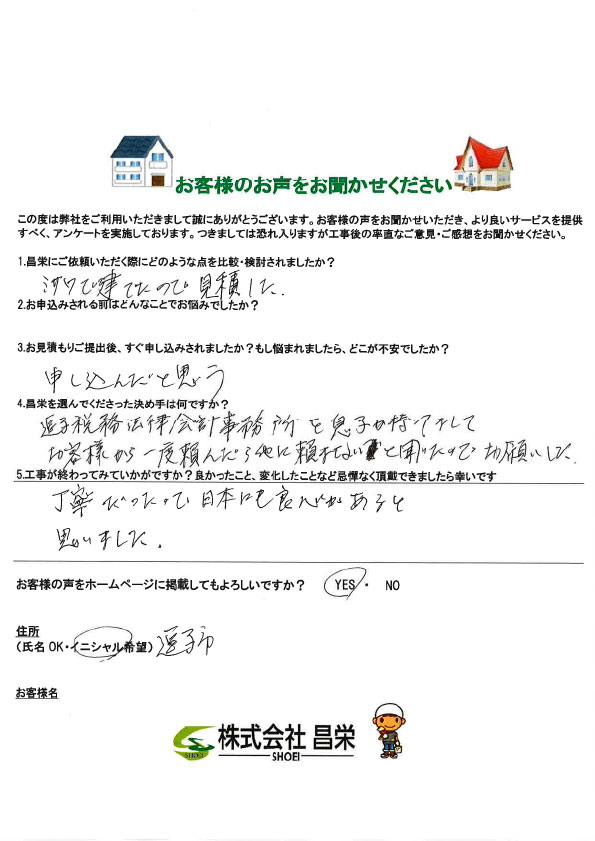 お客様のお声をお聞かせください
この度は弊社をご利用いただきまして誠にありがとうございます。お客様の声をお聞かせいただき、より良いサービスを提供
すべく、アンケートを実施しております。つきましては恐れ入りますが工事後の率直なご意見・ご感想をお聞かせください。
1.昌栄にご依頼いただく際にどのような点を比較・検討されましたか？
で建てたので見積した.
2.お申込みされる前はどんなことでお悩みでしたか？
3.お見積もりご提出後、すぐ申し込みされましたか？もし悩まれましたら、どこが不安でしたか？
申し込んだと思う
4.昌栄を選んでくださった決め手は何ですか？
逗子税務法律会計事務所を息子が持ってまして
お客様から一度頼んだら他に頼れないと聞いたので お願いした.
5.工事が終わってみていかがですか？良かったこと、変化したことなど忌憚なく頂戴できましたら幸いです
丁寧だったので日本にも良心があると
思いました.
お客様の声をホームページに掲載してもよろしいですか？ YES ・ NO
住所
（氏名OK・イニシャル希望） 逗子市
お客様名
株式会社 昌栄
SHOEI
SHOEI